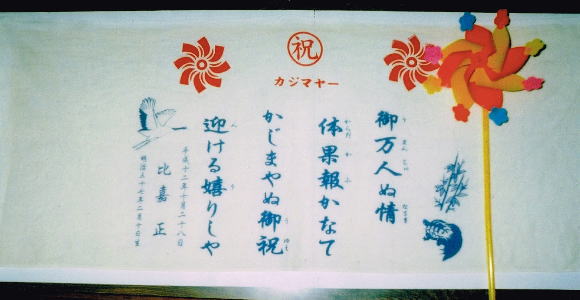 祝
カジマヤー
御万人ぬ情
体果報かなて
かじまやぬ御祝
迎ける嬉りしや
平成十二年十月二十八日
比嘉 正
明治三十七年二月十日生